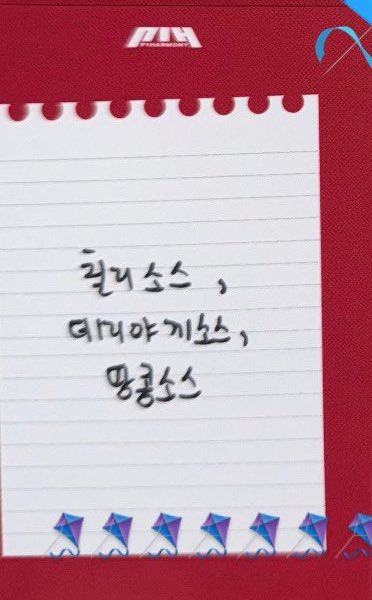 P1HARMONY
칠리소스,
데리야끼소스,
땅콩소스